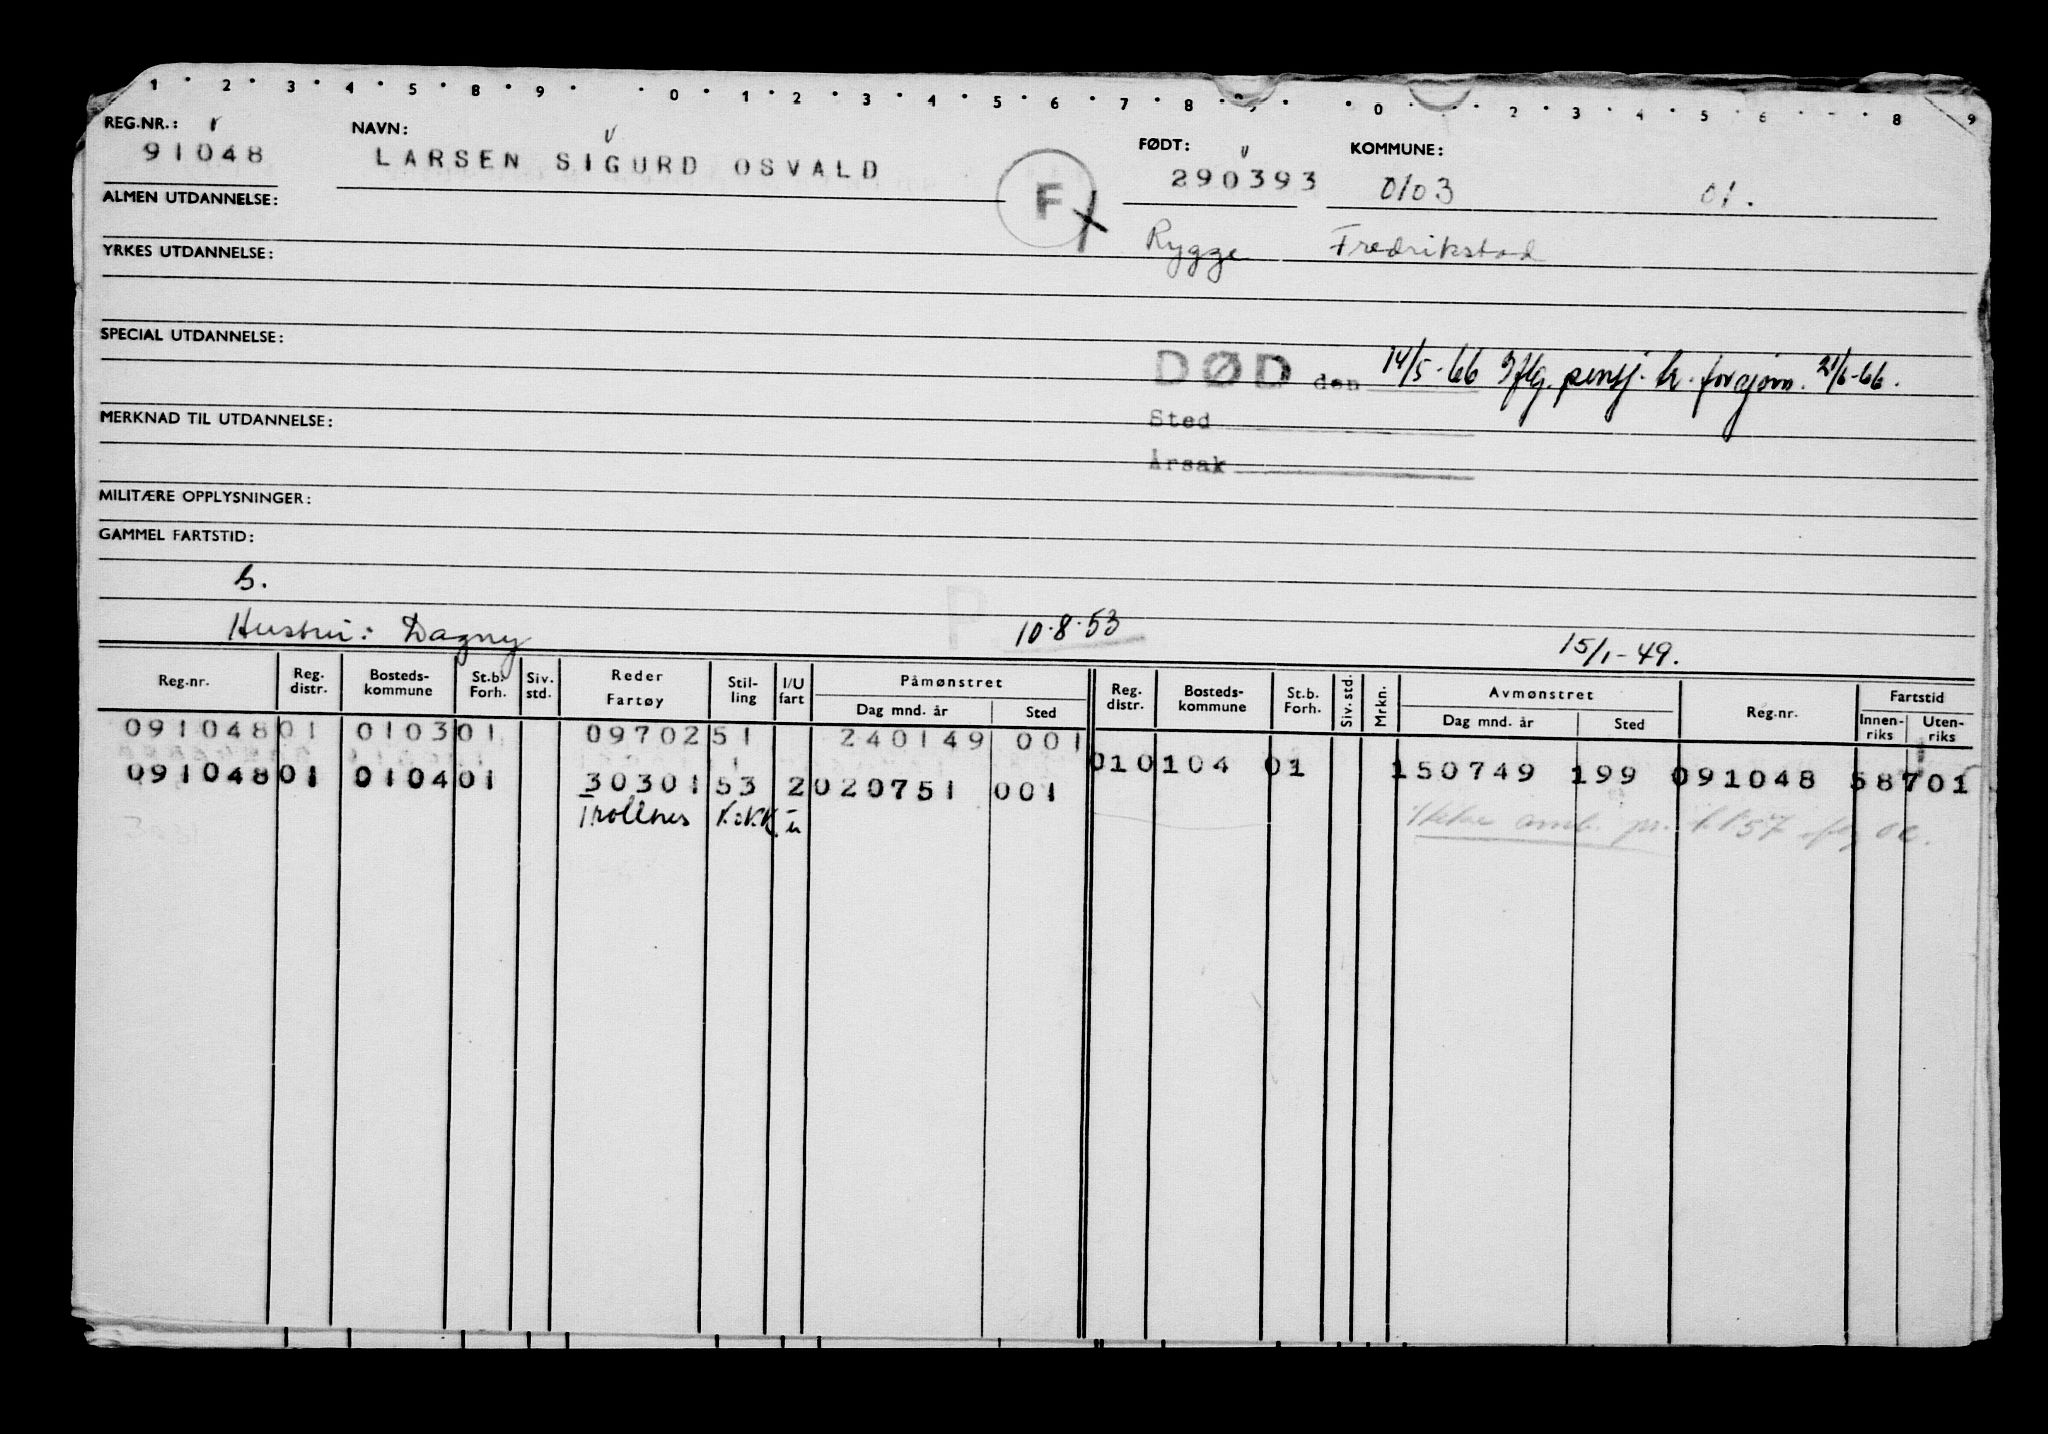 1 2 3 4 5 8 9 0 1 2 3 4 5 6 7 8 9 0 2 3 4 5 6 8 9
REG.NR.: NAVN: FØDT: KOMMUNE:
91048 LARSEN SIGURD OSVALD 290393 0103 01.
F
ALMEN UTDANNELSE:
Rygge Fredrikstad
YRKES UTDANNELSE:
SPECIAL UTDANNELSE:
DØD den 14/5-66 Iflg. pensj. k. forgjørn. 21/6-66.
Sted
MERKNAD TIL UTDANNELSE:
Årsak
MILITÆRE OPPLYSNINGER:
GAMMEL FARTSTID:
S.
P
Hustru: Dagny 10.8.53 15/1-49.
Reg.nr. Reg. distr. Bosteds-kommune St.b. Forh. Siv. std. Reder Fartøy Stil-ling I/U fart Påmønstret Dag mnd. år Sted Reg. distr. Bosteds-kommune St.b. Forh. Siv. std. Mrkn. Avmønstret Dag mnd. år Sted Reg.nr. Fartstid Innen-riks Uten-riks
091048 01 0103 01 09702 51 240149 001
01 0104 01 150749 199 091048 587 01
091048 01 0104 01 30301 53 2 020751 001
Trollnes Kokk u
Ikke omb. pr. 1/1 57